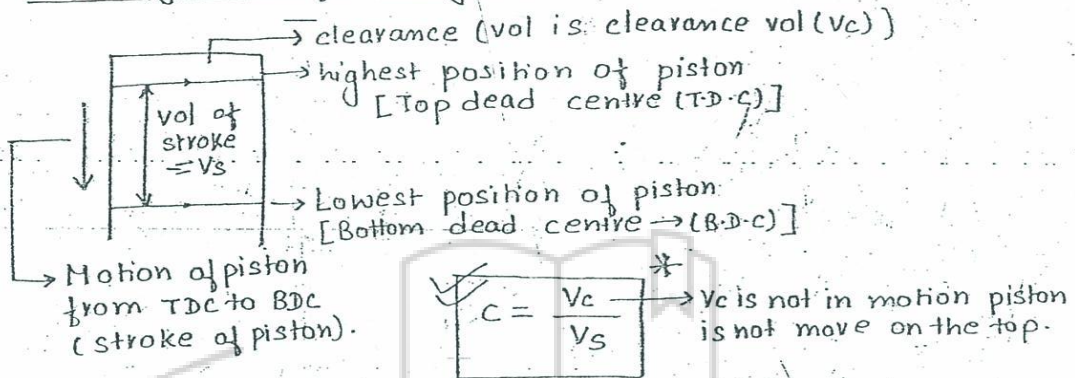 → clearance (vol is clearance vol (Vc))
→ highest position of piston
[Top dead centre (T.D.C)]
vol of
stroke
= Vs
→ Lowest position of piston
[Bottom dead centre → (B.D.C)]
→ Motion of piston
from TDC to BDC
(stroke of piston).
*
C = Vc / Vs → Vc is not in motion piston
is not move on the top.